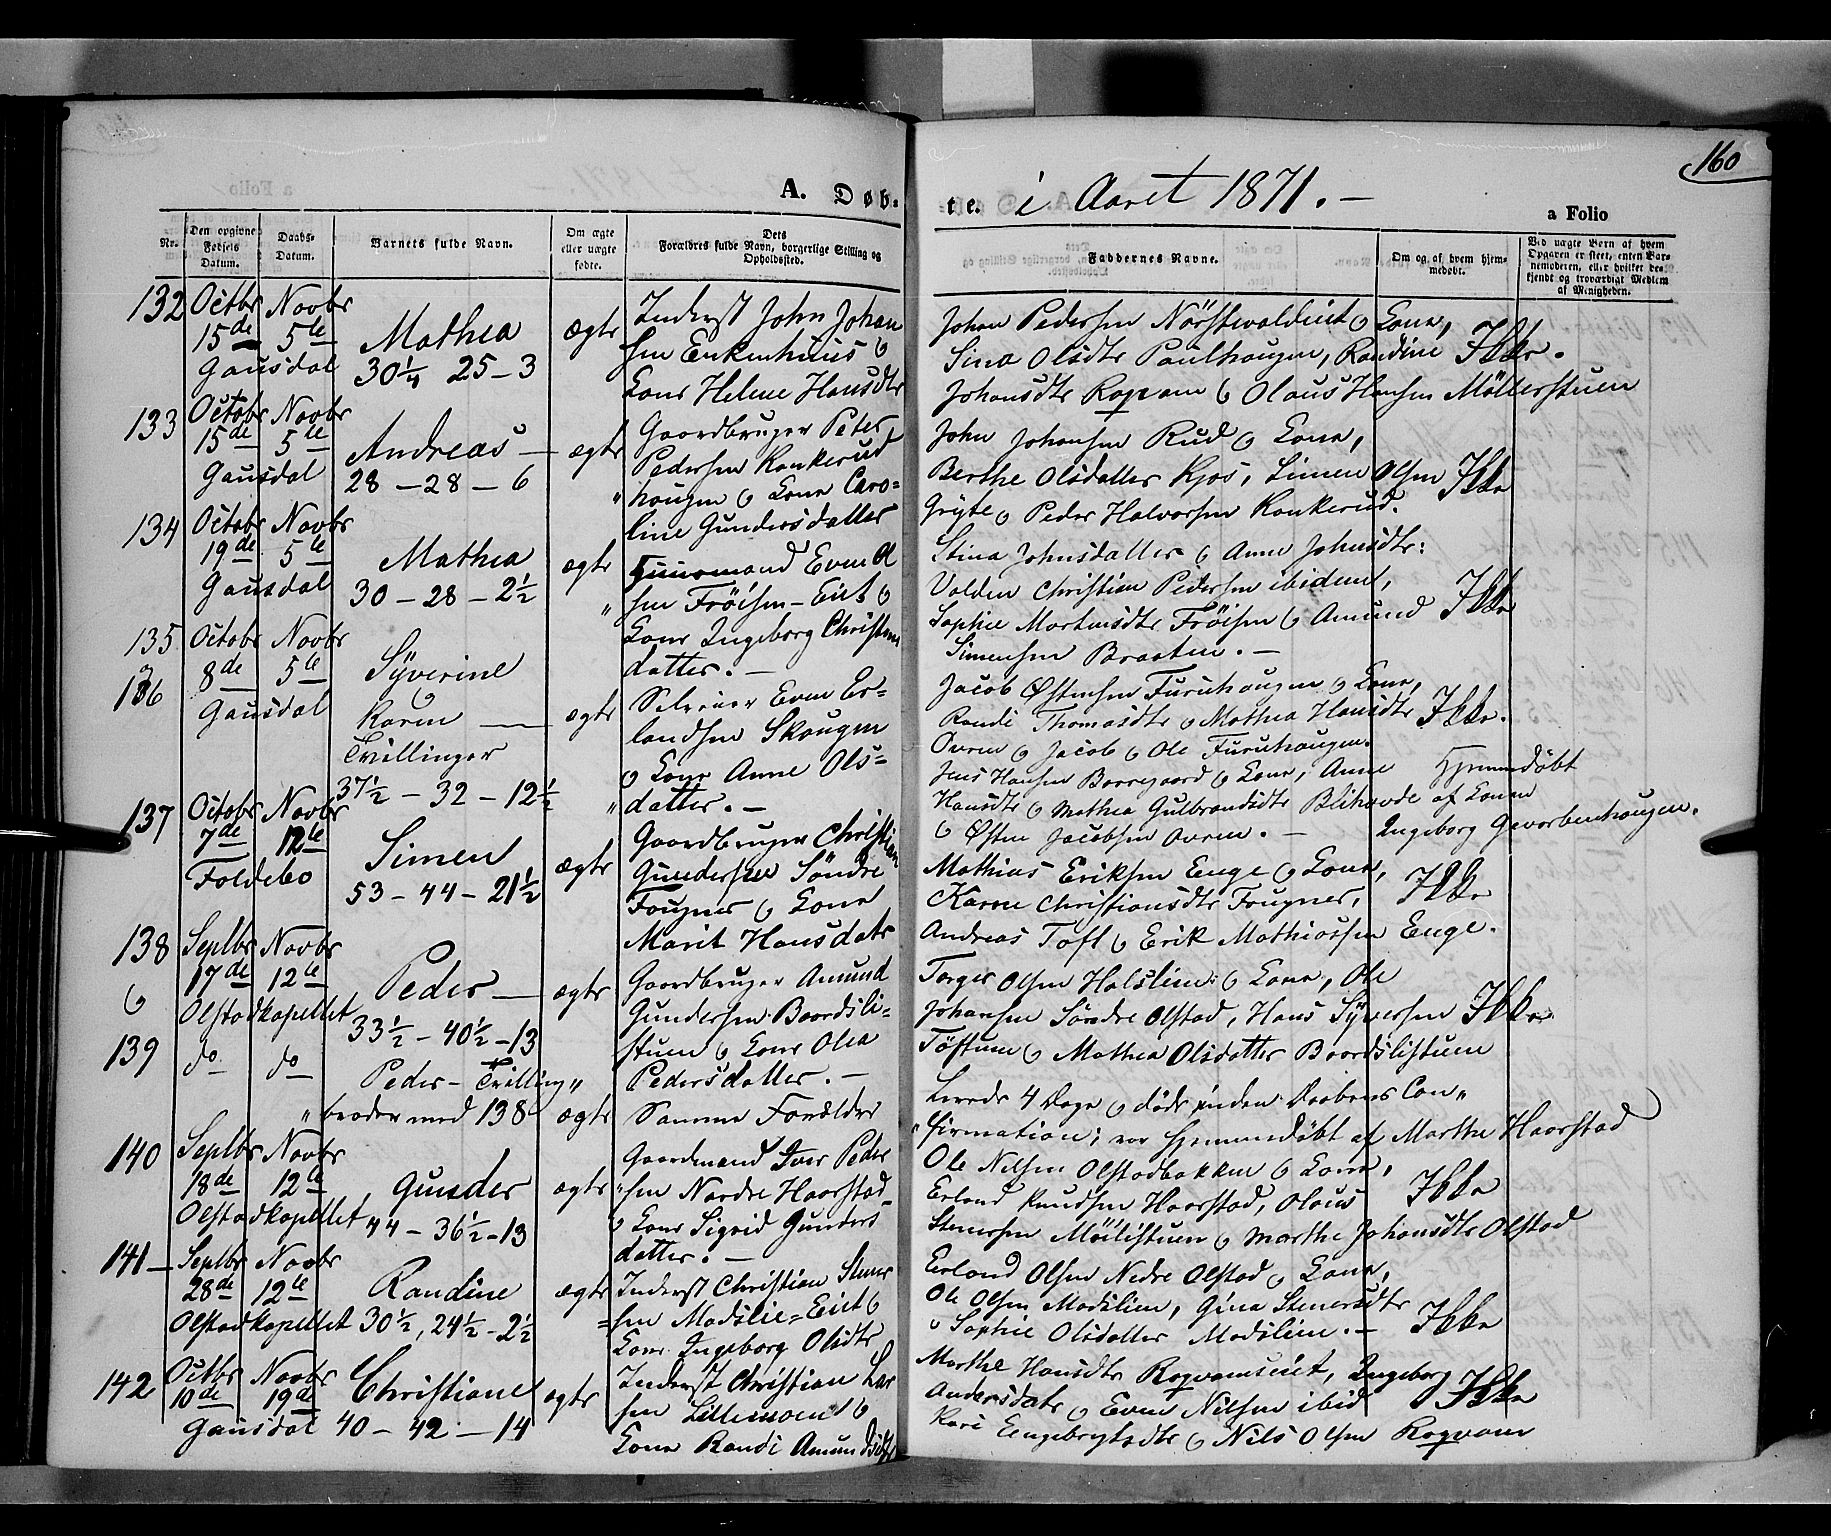 160
A. Døb-
te. i Aaret 1871. -
a Folio
Nr.
Den opgivne Fødsels Datum.
Daabs-Datum.
Barnets fulde Navn.
Om ægte eller uægte fødte.
Dets Forældres fulde Navn, borgerlige Stilling og Opholdssted.
Faddernes Navne.
Om og af hvem hjemmedøbt.
Ved uægte Børn af hvem Opgaven er skeet, enten Barnemoderen, eller hvilket bekjendt og troværdigt Medlem af Menigheden.
132 Octbr 15de Novbr 5te
Gausdal
Mathea
30 1/4 25 - 3
ægte
Inderst John Johan
sen Enkenhuus o
Kone Helene Hansdtr
Johan Pedersen Nörstvoldeiet o Kone,
Sina Olsdtr Paulhaugen, Randine
Johansdtr Roqvam o Olaus Hansen Möllerstuen
Ikke.
133 Octobr 15de Novbr 5te
Gausdal
Andreas -
28 - 28 - 6
ægte
Gaardbruger Peter
Pedersen Kankerud
haugen o Kone Caro=
line Gundersdatter
John Johansen Rud o Kone,
Berthe Olsdatter Kjos, Simen Olsen
Gryte o Peder Halvorsen Kankerud.
Ikke
134 Octobr 19de Novbr 5te
Gausdal
Mathea
30 - 28 - 2 1/2
ægte
Huusmand Even Ol
sen Fröisen - Eiet o
Kone Ingeborg Christens
datter. -
Stina Johnsdatter o Anne Johnsdtr:
Volden Christian Pedersen ibidemt,
Sophie Martinsdtr Fröisen o Amund
Simensen Braaten. -
Ikke
135 o 136 Octobr 8de Novbr 5te
Gausdal
Syverine
o
Karen -
Tvillinger
37 1/2 - 32 - 12 1/2
ægte
Selveier Even Er=
landsen Skougen
o Kone Anne Ols=
datter. -
Jacob Østensen Furuhaugen o Kone,
Randi Thomasdtr o Mathea Hansdtr
Ovren o Jacob o Ole Furuhaugen.
Jens Hansen Borregaard o Kone, Anne
Hansdtr o Mathea Gulbrandsdtr Blihovde
o Østen Jacobsen Ovren. -
Ikke.
Hjemmedøbt
af Konen
Ingeborg Gevorbenhaugen.
137 Octobr 7de Novbr 12te
Foldebo
Simen
53 - 44 - 21 1/2
ægte
Gaardbruger Christian
Gundersen Söndre
Fougner o Kone
Marit Hansdatr
Mathias Eriksen Enge o Kone,
Karen Christiansdtr Fougner,
Andreas Toft o Erik Mathiassen Enge.
Ikke
138 Septbr 17de Novbr 12te
Olstadkapellet
Peder -
33 1/2 - 40 1/2 - 13
ægte
Gaardbruger Amund
Gundersen Baardsli=
stuen o Kone Olea
Pedersdatter. -
Torger Olsen Holslien o Kone, Ole
Johansen Söndre Olstad, Hans Syversen
Töftum o Mathea Olsdatter Baardslistuen
Ikke
o
139 do do
Peder - Tvilling
broder med 138
ægte
Samme Forældre
Levede 4 Dage o døde inden Daabens Con„
firmation; var hjemmedøbt af Marthe Haarstad
140 Septbr 18de Novbr 12te
Olstadkapellet
Gunder
44 - 36 1/2 - 13
ægte
Gaardmand Iver Peder
sen Nordre Haarstad
o Kone Sigrid Gunders
datter. -
Ole Nilsen Olstadbakken o Kone,
Erland Knudsen Haarstad, Olaus
Stenersen Möllistuen o Marthe Johansdtr Olstad
Ikke
141 - Septbr 28de Novbr 12te
Olstadkapellet
Randine
30 1/2, 24 1/2 - 2 1/2
ægte
Inderst Christian Stener
sen Madslie=Eiet o
Kone Ingeborg Olsdtr
Erland Olsen Nedre Olstad o Kone,
Ole Olsen Madslien, Gina Stenersdtr
o Sophie Olsdatter Madslien. -
Ikke
142 Octbr 10de Novbr 19de
Gausdal
Christiane
40 - 42 - 14
ægte
Inderst Christian Lar
sen Lillemoen o
Kone Randi Amundsdtr
Marthe Hansdtr Roqvamseiet, Ingeborg
Andersdatr o Even Nilsen ibid
Kari Engebrigtsdtr o Nils Olsen Roqvam
Ikke